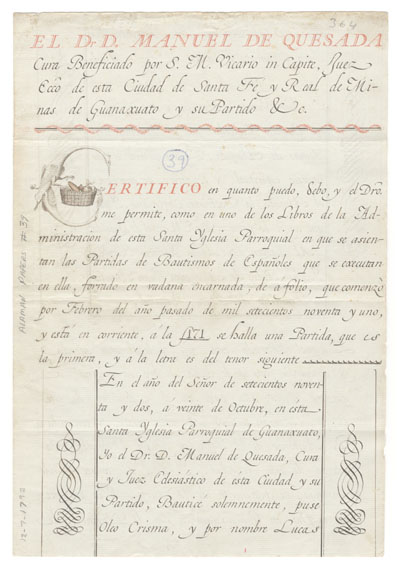 364
EL Dr D. MANUEL DE QUESADA
Cura Beneficiado por S. M. Vicario in Capite, Juez
Ecco de esta Ciudad de Santa Fe y Real de Mi-
nas de Guanaxuato y su Partido &c.
39
CERTIFICO en quanto puedo, debo, y el Dro.
me permite, como en uno de los Libros de la Ad-
ministracion de esta Santa Yglesia Parroquial en que se asien-
tan las Partidas de Bautismos de Españoles que se executan
en ella, forrado en vadana encarnada, de a folio, que comenzò
por Febrero del año pasado de mil setecientos noventa y uno,
y está en corriente, á la 171 se halla una Partida, que es
la primera, y á la letra es del tenor siguiente
En el año del Señor de setecientos noven
ta y dos, á veinte de Octubre, en esta
Santa Yglesia Parroquial de Guanaxuato,
Yo el Dr. D. Manuel de Quesada, Cura
y Juez Eclesiástico de esta Ciudad y su
Partido, Bauticé solemnemente, puse
Oleo Crisma, y por nombre Lucas
ALAMAN PAPERS # 39
12-7-1792